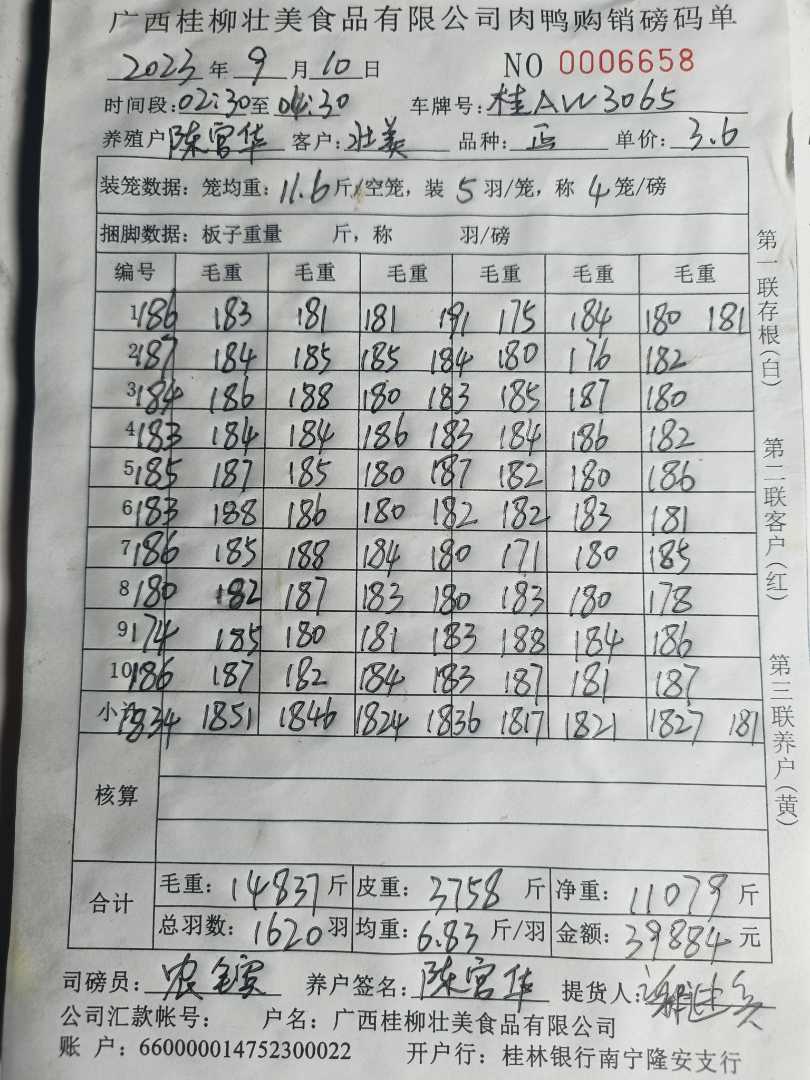 广西桂柳壮美食品有限公司肉鸭购销磅码单
2023年9月10日 NO 0006658
时间段:02:30至04:30 车牌号:桂AW3065
养殖户陈宫华 客户:壮美 品种:正 单价:3.6
装笼数据:笼均重:11.6斤/空笼,装5羽/笼,称4笼/磅
捆脚数据:板子重量 斤,称 羽/磅
编号 毛重 毛重 毛重 毛重 毛重 毛重
1 186 183 181 181 191 175 184 180 181
2 187 184 185 185 184 180 176 182
3 184 186 188 180 183 185 187 180
4 183 184 184 186 183 184 186 182
5 185 187 185 180 187 182 180 186
6 183 188 186 180 182 182 183 181
7 186 185 188 184 180 171 180 185
8 180 182 187 183 180 183 180 178
9 174 185 180 181 183 188 184 186
10 186 187 182 184 183 187 181 187
小计 1834 1851 1846 1824 1836 1817 1821 1827 181
核算
合计
毛重:14837斤 皮重:3758斤 净重:11079斤
总羽数:1620羽 均重:6.83斤/羽 金额:39884元
司磅员: 养户签名:陈宫华 提货人:
公司汇款帐号: 户名:广西桂柳壮美食品有限公司
账 户:660000014752300022 开户行:桂林银行南宁隆安支行
第一联存根(白)
第二联客户(红)
第三联养户(黄)